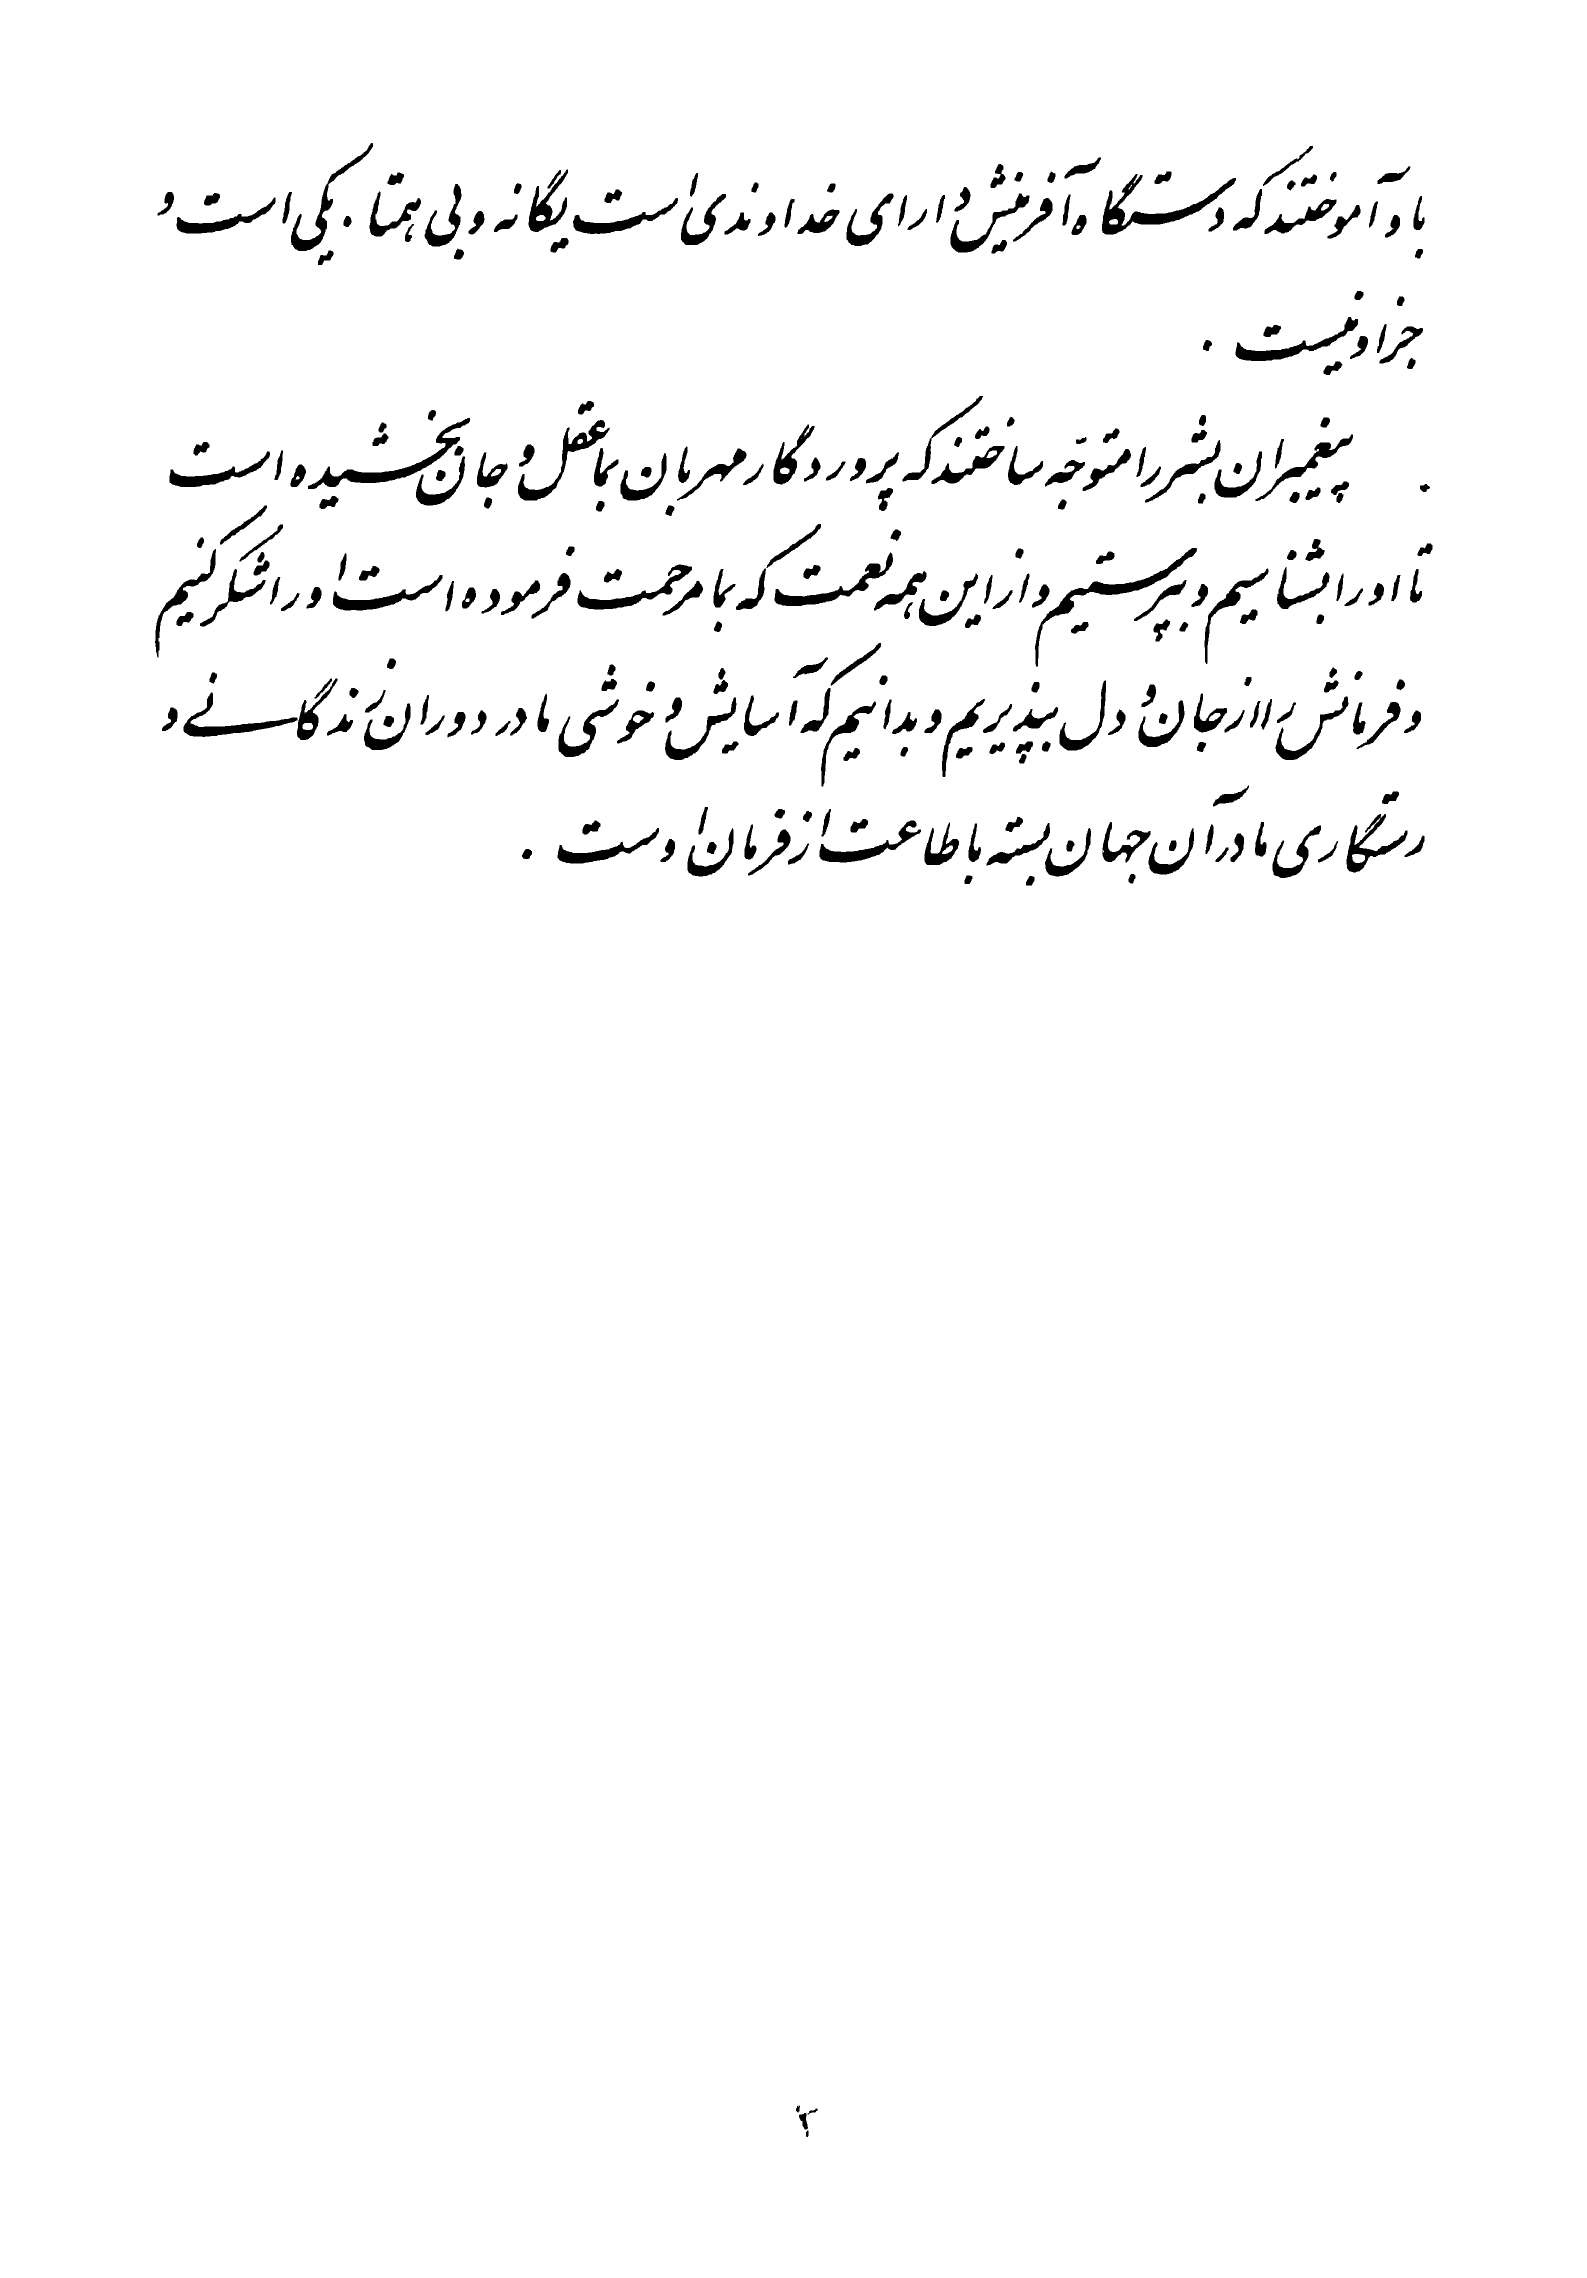 باو آموختند که دستگاه آفرینش دارای خداوندی است یگانه و بی همتا . یکی است و
جز او نیست .
پیغمبران بشر را متوجّه ساختند که پروردگار مهربان بما عقل و جان بخشیده است
تا او را بشناسیم و بپرستیم و از این همه نعمت که بما مرحمت فرموده است او را شکر کنیم
و فرمانش را از جان و دل بپذیریم و بدانیم که آسایش و خوشی ما در دوران زندگانی و
رستگاری ما در آن جهان بسته باطاعت از فرمان اوست .
۳